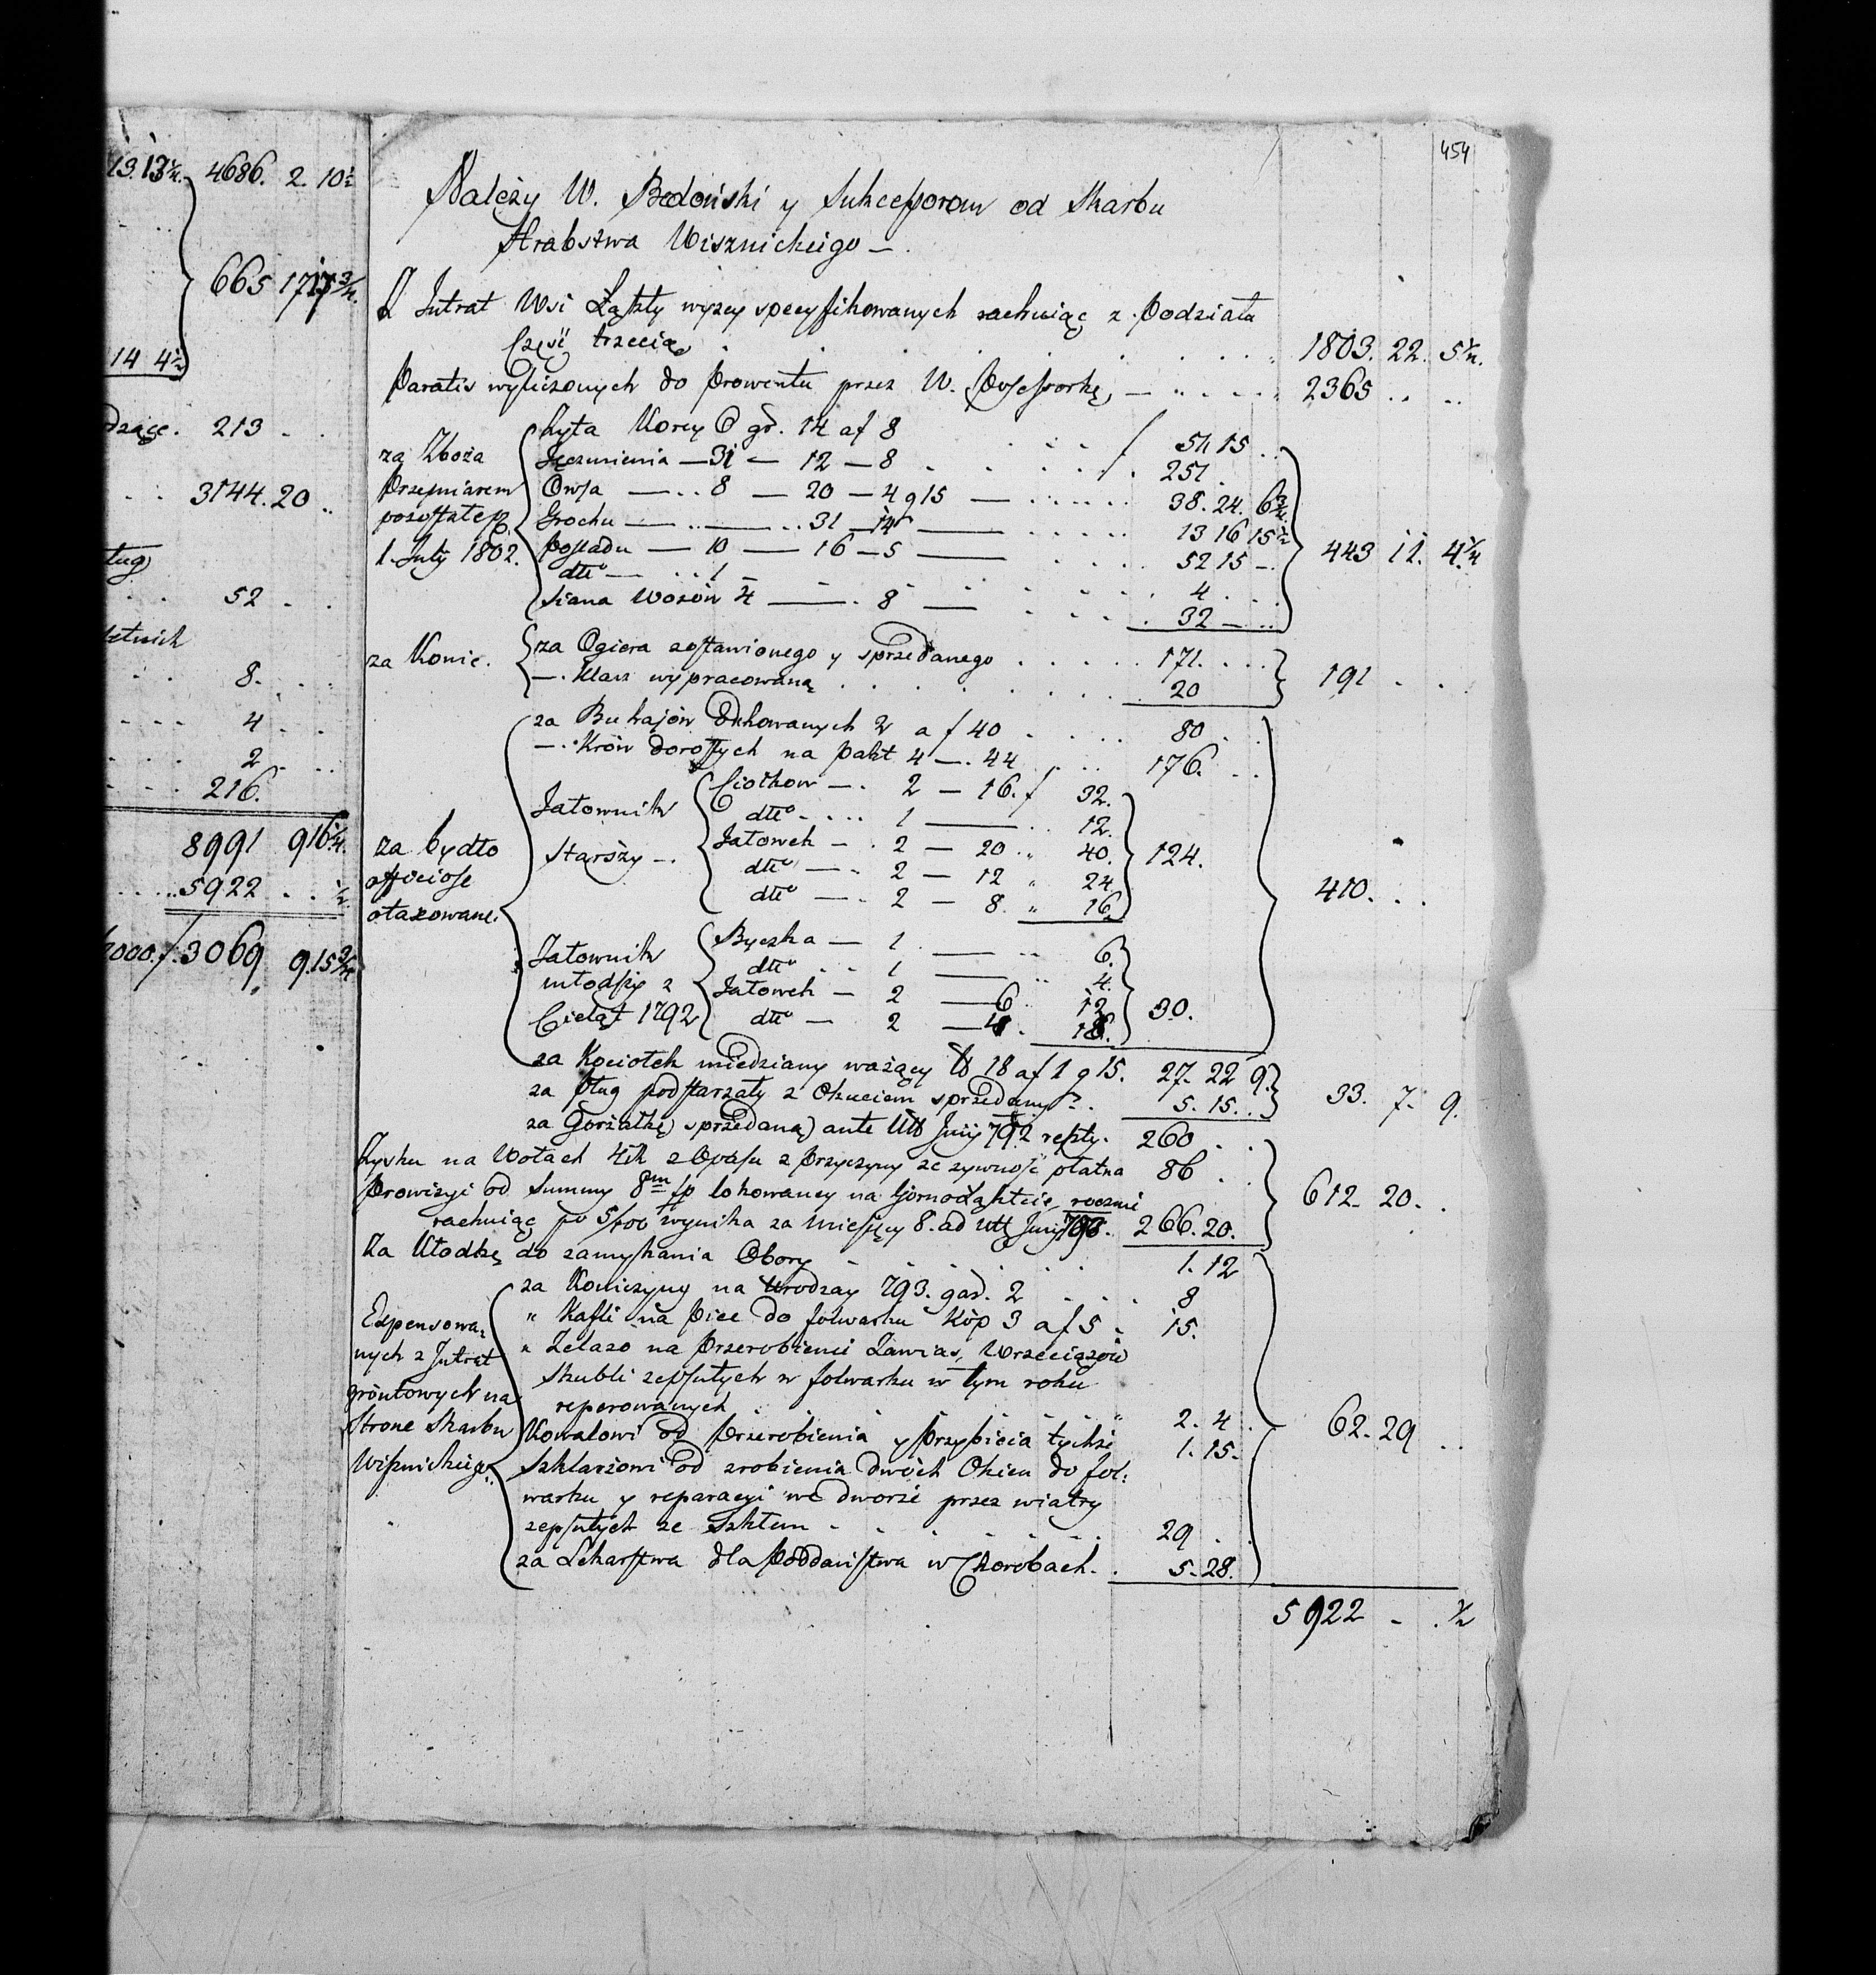 13. 13 ¼. 4686. 2. 10 ½
665 17 17 ¾.
14 4 ½
dzące. 213 . .
. . 3144. 20 ..
ług
. . 52 . .
letnich
. . 8. . .
- - - - 4 . .
. . . 2 . ..
- - - - 216.
8991 9 16 ¼.
. . . . 5922 . . ½
/3069 9. 15 ¾
454
Należy W. Bedoński y Sukcessorom od Skarbu
Hrabstwa Wisznickiego —.
Z Intrat Wsi Łąkty wyzey specyfikowanych rachuiąc z Podziału
Częsć trzecią . . . . . . . . 1803. 22. 5 ¼.
Paratis wyliczonych do Prowentu przez W. Possessorkę, — . . . . 2365 .. ..
za Zboża
Przemiarem
pozostałe p.
1. July 1802.
Żyta Korcy 6 gr. 14 a f 8 . . . / 51. 15 ..
Jęczmienia — 31 — 12 — 8 . . . . / . 251 .
Owsa — .. 8 — 20 — 4 g 15 — . . . . . 38. 24. 6 ¾.
Grochu — .. — .. 31 — 14 — . . . . . 13 16 15 ½
Pośladu — 10 — 16 — 5 — . . . . 52 15 —.
dtto — .. 1 — - - . . . . 4 . . .
Siana Wozów 4 — . 8 — . . . . 32 — ..
443 11. 4 ¼
za Konie.
za Ogiera zostawionego y sprzedanego . . . . . 171. . . .
—. Klacz wypracowaną . . . . . . . . 20
191 - . .
za bydło
otaxowane.
za Buhajów Dchowanych 2 a f 40 . . . . 80 . .
—. Krów dorosłych na pakt 4 —. 44 . . .. 176. . .
Jałownik
Starszy —.
Ciołkow —. 2 — 16. f 32.
dtto - . . . 1 — .. 12.
Jałowek — . 2 — 20 .. 40.
dtto — . 2 — 12 " 24
dtto — . 2 — 8. " 16
124.
Jałownik
młodszy z
Cieląt 1792
Byczka — 1 . — .. 6.
dtto . . . 1 — .. 4.
Jałowek — 2 — 6 . 12
dtto — 2 — 4 . 18.
30.
410. . .
za Kociołek miedziany ważący ℔ 18 a f 1 g 15. 27. 22 9.
za Pług podstarzały z Okuciem sprzedany . . 5. 15. ..
33. 7. 9.
za Gorzałkę sprzedaną ante Ult Junij 792 reszty. 260 . .
Zysku na Wołach z Opasu z przyczyny ze zywność płatna 86 . .
Prowizyi od Summy 8m fp lokowaney na Górnołąkcie, roczni
rachuiąc po 5/100 wynika za Miesięcy 8. ad ult Junij 793. 266. 20.
612. 20. .
Za Kłodkę do zamykania Obory . . . . . . 1. 12
Expensowa,
nych z Intrat
grontowych na
Strone Skarbu
Wisznickiego.
za Koniczyny na Urodzay 793. gar. 2 . . . . 8
" Kafli na Piec do folwarku Kóp 3 a f 5 . 15.
" Zelazo na Przerobienie Zawias, Wrzeciązów
Skubli zepsutych w folwarku w tym roku
reperowanych . . . . . . " 2. 4 .
Kowalowi od Przerobienia y przybicia tychże 1. 15.
Szklarzowi od zrobienia dwóch Okien do fol:
warku y reparacyi we dworze przez wiatry
zepsutych ze Szkłem . . . . . . . 29 . .
za Lekarstwa dla Poddaństwa w Chorobach. . 5. 28.
62. 29 ..
5922 - . ½